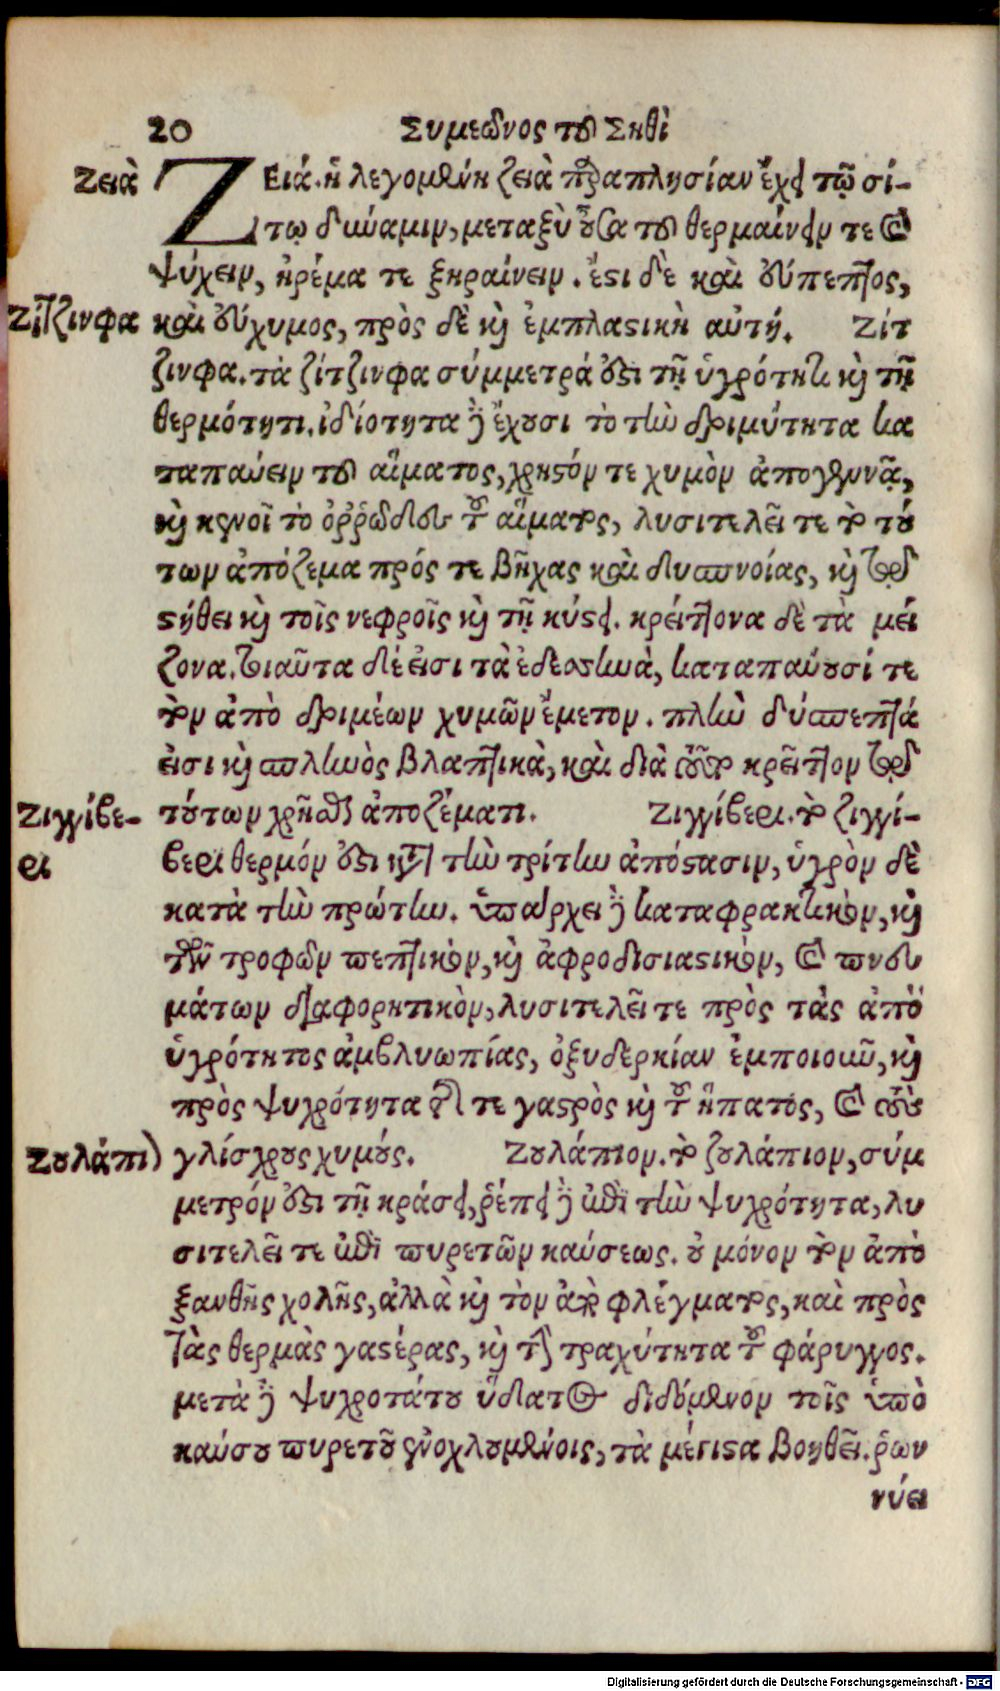 20 Συμεῶνος τοῦ Σηθὶ
Ζειὰ
ΖΕιά. ἡ λεγομένη ζειὰ παραπλησίαν ἔχει τῷ σί-
τῳ δύναμιν, μεταξὺ οὖσα τοῦ θερμαίνειν τε καὶ
ψύχειν, ἠρέμα τε ξηραίνειν. ἔστι δὲ καὶ εὔπεπτος,
Ζίτζινφα
καὶ εὔχυμος, πρὸς δὲ καὶ ἐμπλαστικὴ αὐτή. Ζίτ
ζινφα. τὰ ζίτζινφα σύμμετρά ἐστι τῇ ὑγρότητι καὶ τῇ
θερμότητι. ἰδίοτητα δὲ ἔχουσι τὸ τὴν δριμύτητα κα
ταπαύειν τοῦ αἵματος, χρηστόν τε χυμὸν ἀπογεννᾷ,
καὶ κενοῖ τὸ ὀῤῥῶδες τοῦ αἵματος, λυσιτελεῖ τε τὸ τού
των ἀπόζεμα πρός τε βῆχας καὶ δυσπνοίας, καὶ τῷ
στήθει καὶ τοῖς νεφροῖς καὶ τῇ κύστει. κρείττονα δὲ τὰ μεί
ζονα. τοιαῦτα δέ εἰσι τὰ ἐδεστικὰ, καταπαύουσί τε
τὸν ἀπὸ δριμέων χυμῶν ἔμετον. πλὴν δύσπεπτά
εἰσι καὶ σπληνὸς βλαπτικὰ, καὶ διὰ τοῦτο κρεῖττον τῷ
Ζιγγίβε-
ρι
τούτων χρῆσθαι ἀποζέματι. Ζιγγίβερι. τὸ ζιγγί-
βερι θερμόν ἐστι κατὰ τὴν τρίτην ἀπόστασιν, ὑγρὸν δὲ
κατὰ τὴν πρώτην. ὑπάρχει δὲ καταφρακτικὸν, καὶ
τῶν τροφῶν πεπτικὸν, καὶ ἀφροδισιαστικὸν, καὶ πνευ
μάτων διαφορητικὸν, λυσιτελεῖ τε πρὸς τὰς ἀπὸ
ὑγρότητος ἀμβλυωπίας, ὀξυδερκίαν ἐμποιοῦν, καὶ
πρὸς ψυχρότητα τῆς τε γαστρὸς καὶ τοῦ ἥπατος, καὶ τοὺς
Ζουλάπιον
γλίσχρους χυμούς. Ζουλάπιον. τὸ ζουλάπιον, σύμ
μετρόν ἐστι τῇ κράσει, ῥέπει δὲ ἐπὶ τὴν ψυχρότητα, λυ
σιτελεῖ τε ἐπὶ πυρετῶν καύσεως. οὐ μόνον τὸν ἀπὸ
ξανθῆς χολῆς, ἀλλὰ καὶ τὸν ἀπὸ φλέγματος, καὶ πρὸς
τὰς θερμὰς γαστέρας, καὶ τὴν τραχύτητα τοῦ φάρυγγος.
μετὰ δὲ ψυχροτάτου ὕδατος διδόμενον τοῖς ὑπὸ
καύσου πυρετοῦ ἐνοχλουμένοις, τὰ μέγιστα βοηθεῖ. ῥων
νύει
Digitalisierung gefördert durch die Deutsche Forschungsgemeinschaft - DFG